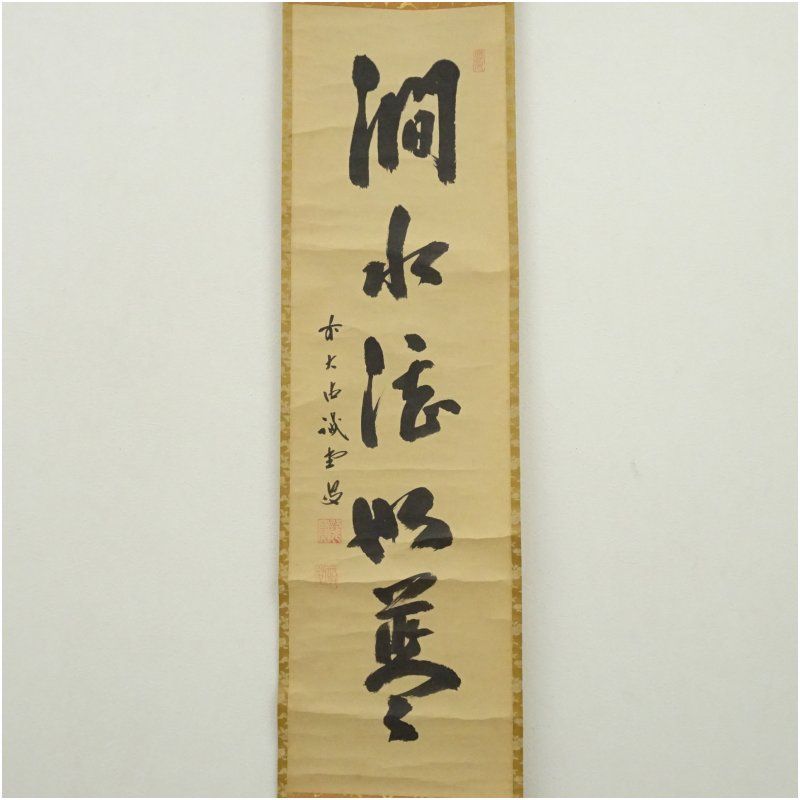 澗水湛如藍
前大徳誠堂